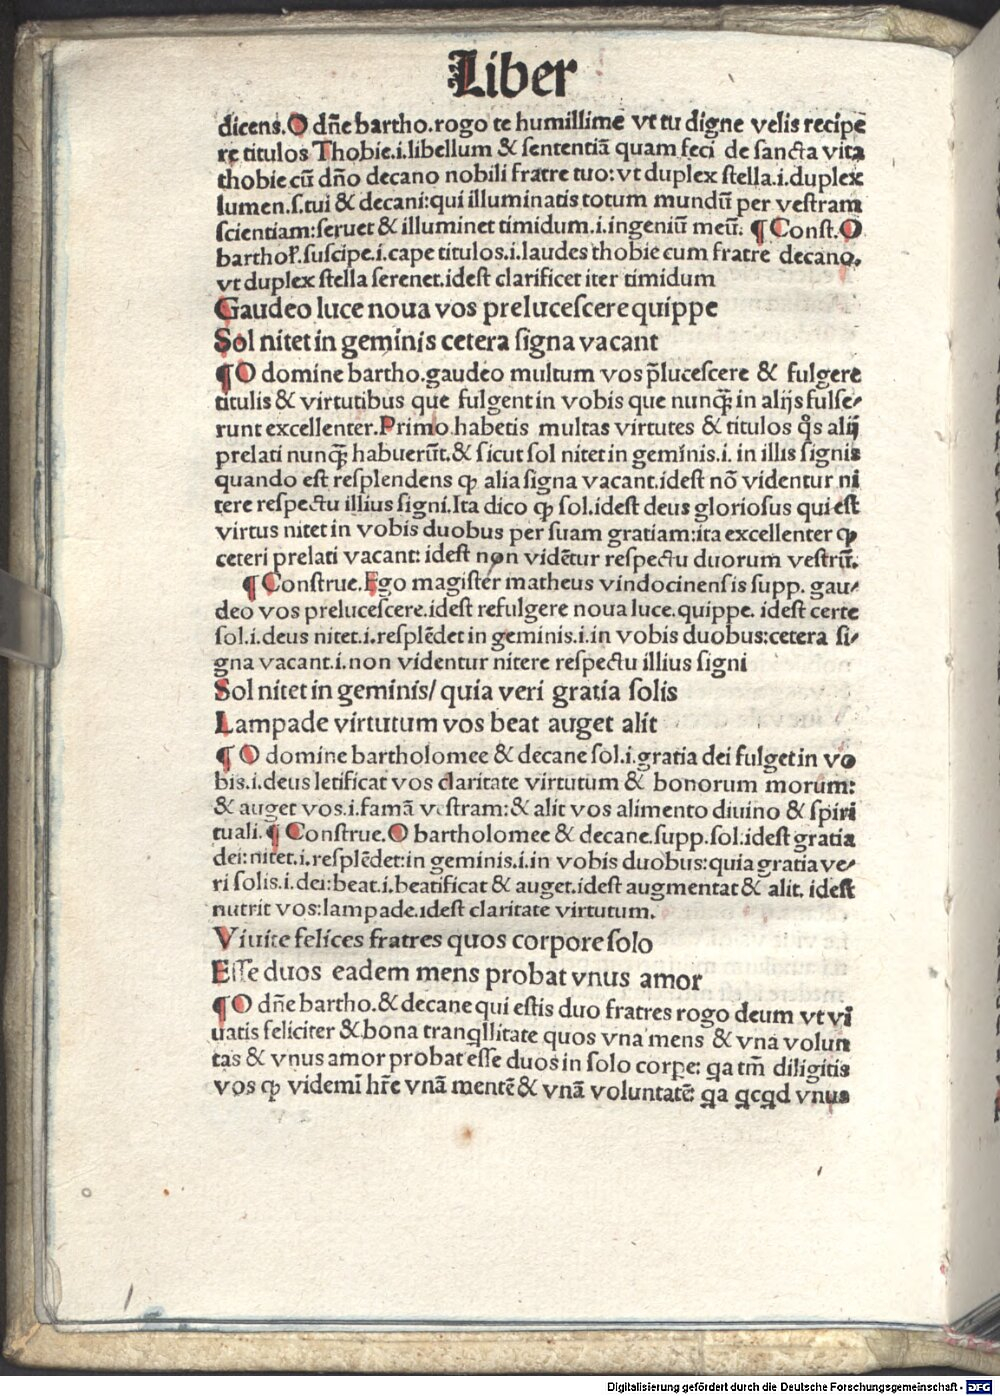 Liber
dicens.O dñe bartho.rogo te humillime vt tu digne velis recipe
re titulos Thobie.i.libellum & sententiã quam feci de sancta vita
thobie cũ dño decano nobili fratre tuo:vt duplex stella.i.duplex
lumen.s.tui & decani:qui illuminatis totum mundũ per vestram
scientiam:seruet & illuminet timidum.i.ingeniũ meũ. ¶ Const.O
barthoꝉ.suscipe.i.cape titulos.i.laudes thobie cum fratre decano.
vt duplex stella serenet.idest clarificet iter timidum
Gaudeo luce noua vos prelucescere quippe
Sol nitet in geminis cetera signa vacant
¶ O domine bartho.gaudeo multum vos p̃lucescere & fulgere
titulis & virtutibus que fulgent in vobis que nunq̃ in alijs fulse-
runt excellenter.Primo habetis multas virtutes & titulos q̊s alij
prelati nunq̃ habuerũt.& sicut sol nitet in geminis.i. in illis signis
quando est resplendens ꝙ alia signa vacant.idest nõ videntur ni
tere respectu illius signi.Ita dico ꝙ sol.idest deus gloriosus qui est
virtus nitet in vobis duobus per suam gratiam:ita excellenter ꝙ
ceteri prelati vacant: idest non vidẽtur respectu duorum vestrũ.
¶ Construe.Ego magister matheus vindocinensis supp. gau-
deo vos prelucescere.idest refulgere noua luce.quippe. idest certe
sol.i.deus nitet.i.resplẽdet in geminis.i.in vobis duobus:cetera si-
gna vacant.i.non videntur nitere respectu illius signi
Sol nitet in geminis/ quia veri gratia solis
Lampade virtutum vos beat auget alit
¶ O domine bartholomee & decane sol.i.gratia dei fulget in vo
bis.i.deus letificat vos claritate virtutum & bonorum morum:
& auget vos.i.famã vestram:& alit vos alimento diuino & spiri
tuali.¶ Construe.O bartholomee & decane.supp.sol.idest gratia
dei:nitet.i.resplẽdet:in geminis.i.in vobis duobus:quia gratia ve-
ri solis.i.dei:beat.i.beatificat & auget.idest augmentat & alit. idest
nutrit vos:lampade.idest claritate virtutum.
Viuite felices fratres quos corpore solo
Esse duos eadem mens probat vnus amor
¶ O dñe bartho.& decane qui estis duo fratres rogo deum vt vi
uatis feliciter & bona tranqllitate quos vna mens & vna volun
tas & vnus amor probat esse duos in solo corpe: qa tm̃ diligitis
vos ꝙ videmĩ hr̃e vnã mentẽ & vnã voluntatẽ: qa qcqd vnus
Digitalisierung gefördert durch die Deutsche Forschungsgemeinschaft - DFG